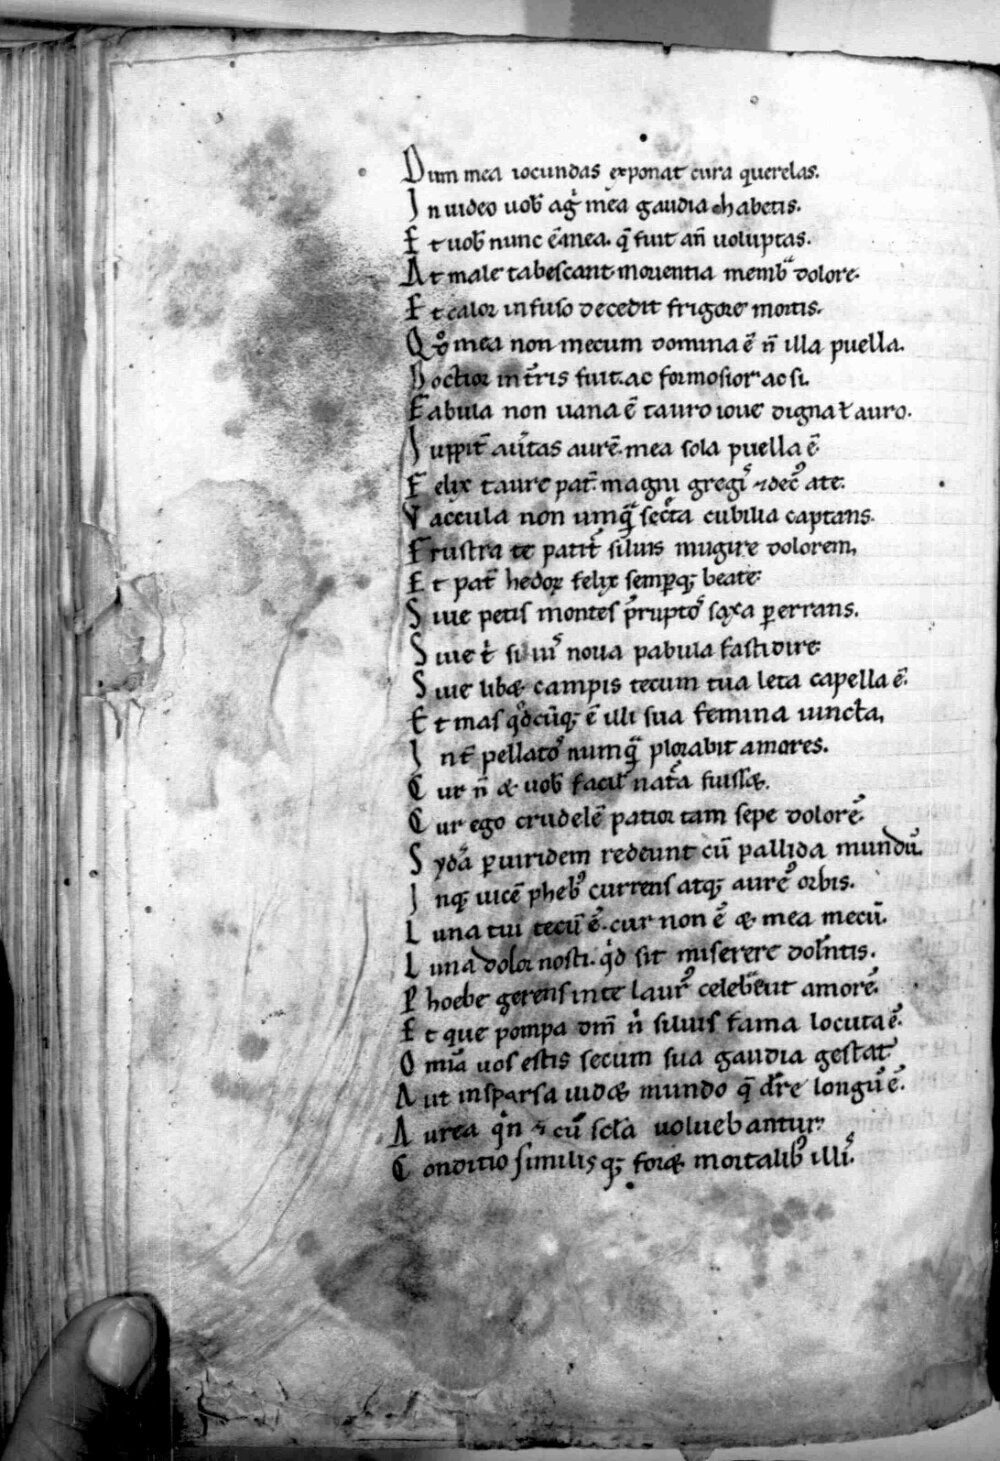 Dum mea iocundas exponat cura querelas.
Inuideo uob̄ ag̍ mea gaudia habetis.
Et uob̄ nunc ē mea. q̄ fuit an̄ uoluptas.
At male tabescant morientia memb͛ dolore.
Et calor infuso decedit frigore mortis.
Qđ mea non mecum domina ē n̄ illa puella.
Doctior in t̄ris fuit. ac formosior ac si.
Fabula non uana ē tauro ioue dignať auro.
Iuppit̄ aūtas aurē. mea sola puella ē
Felix taure pat̄. magni gregiˀ ⁊ decˀ ate.
Vaccula non umq̄ sec̄ta cubilia captans.
Frustra te patit̄ siluis mugire dolorem.
Et pat̄ hedoꝝ felix semꝑqꝫ beate.
Siue petis montes p̄ruptoˀ saxa ꝑerrans.
Siue t̍ siluiˀ noua pabula fastidire
Siue libæ campis tecum tua leta capella ē.
Et mas qđcūqꝫ ē illi sua femina uincta,
Int̄pellatoˀ numq̄ plorabit amores.
Cur n̄ & uob̄ facil̍ nat̄a fuissæ.
Cur ego crudelē patior tam sepe dolorē.
Syđa ꝑ uiridem redeunt cū pallida mundū.
Inqꝫ uicē phebˀ currens atqꝫ aureˀ orbis.
Luna tui tecū ē. cur non ē & mea mecū.
Luna dolor nosti. q̍d sit miserere dol̄ntis.
Phoebe gerens in te laurˀ celeb͛uit amorē.
Et que pompa dm̄ n̍ siluis fama locuta ē.
Omīa uos estis secum sua gaudia gestat
Aut insparsa uidæ mundo q̄ dr̄e longū ē.
Aurea q̍n ⁊ cū scl̄a uoluebantur
Conditio similisqꝫ foræ mortalibˀ illiˀ.